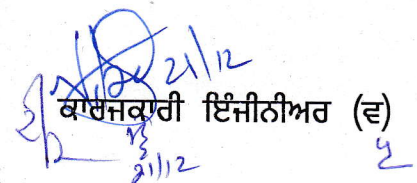 21/12
ਕਾਰਜਕਾਰੀ ਇੰਜੀਨੀਅਰ (ਵ)
21/12